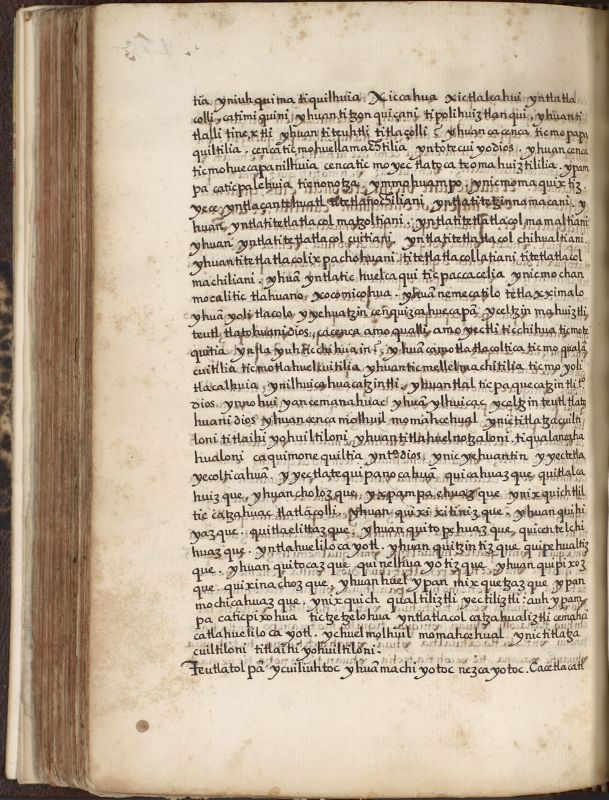 tia yniuhqui ma tiquilhuia Xiccahua xictlalcahui yntlatla
colli, catimiquini yhuan titzonquiçani tipolihuiztlan qui, yhuan ti
tlalli tinextli yhuan titeuhtli titlaçolli yhuan cacenca ticmopapa
quiltilia. cencaticmohuellamachtilia yntotecuiyo dios. yhuan cenca
ticmohuecapanilhuia cencaticmoyectlatocateomahuiztililia. ypam
pa caticpalehuia ticnonotza ymmohuampo ynicmomaquixtiz.
yece yntlaçan tehuatl titetlanochiliani yntlatitetzinnamacani. y
huan yntlatitetlatlacolmatzoltiani. yntlatitetlatlacolmamaltiani
yhuan yntlatitetlatlacolcuitiani yntlatitetlatlacolchihualtiani
yhuan titetlatlacolixpachohuani titetlatlacollatiani titetlatlacol
machiliani. yhuã yntlatic huelcaqui ticpaccacelia ynicmochan
mocalitic tlahuano xocomicohua. yhuã nemecatilo tetlaxximalo
yhuã yolitlacolo yyehuatzin cenquizcahuecapã ycetzin mahuiztli
teutl tlatohuani dios, cacenca amoqualli amoyectli ticchihua ticmote
quitia yntla yuh ticchihua in yhuã camotlatlacoltica ticmoqualã
cuitilia ticmotlahuelcuitilia yhuan ticmellelmachitilia ticmoyoli
tlacalhuia, ynilhuicahuacatzintli. yhuan tlalticpaquecatzintli tto
dios ynnohuiyancemanahuac yhuã ylhuicac ycetzin teutl tlato
huani dios yhuan cenca molhuil momahcehual ynictitlatzacuilti
loni titlaihiyohuiltiloni yhuan titlahuelnotzaloni. tiqualancaha
hualoni caquimonequiltia ynto dios ynicyehuantin yyectla
yecolticahuã yyectlatequipanocahuã quicahuazque, quitlalca
huizque, yhuan cholozque, yxpampa ehuazque ynixquich tlil
tic catzahuac tlatlacolli. yhuan quixixitinizque. yhuan quihi
yazque. quitlaelittazque, yhuan quitopehuazque, quicentelchi
huazque. yntlahuelilocayotl. yhuan quitzintizque quipehualtiz
que. yhuan quitocazque quinelhuayotizque, yhuan quipixoz
que. quixinachozque, yhuan huel ypan mixquetzazque ypan
mochicahuazque. ynixquich qualtiliztli yectiliztli: auh ypam
pa caticpixohua tictzetzelohua yntlatlacolcatzahualiztli cenahci
catlahuelilocayotl. yc huel molhuil momahcehual ynictitlatza
cuiltiloni titlaihiyohuiltiloni.
Teutlatolpã ycuiliuhtoc yhuã machiyotoc nezcayotoc. Cacetlacatl